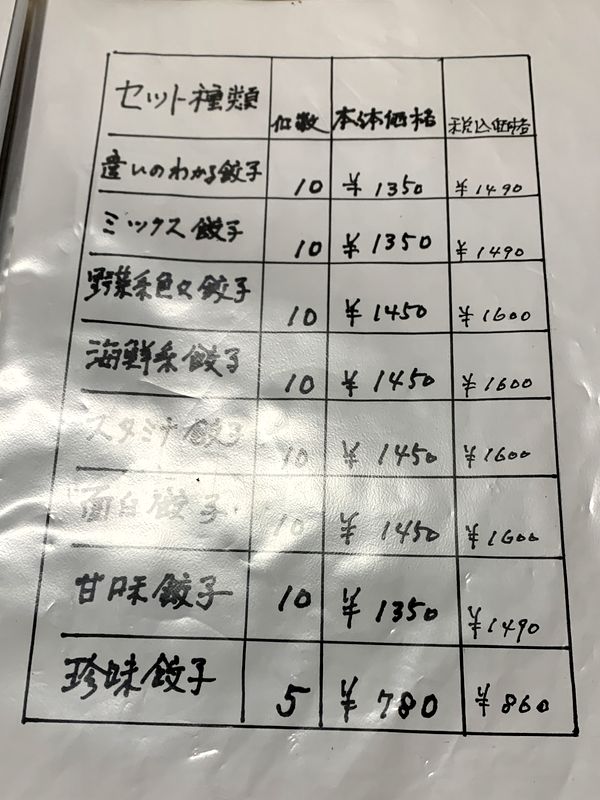 セット種類 個数 本体価格 税込価格
違いのわかる餃子 10 ¥1350 ¥1490
ミックス餃子 10 ¥1350 ¥1490
野菜系色々餃子 10 ¥1450 ¥1600
海鮮系餃子 10 ¥1450 ¥1600
スタミナ餃子 10 ¥1450 ¥1600
面白餃子 10 ¥1450 ¥1600
甘味餃子 10 ¥1350 ¥1490
珍味餃子 5 ¥780 ¥860